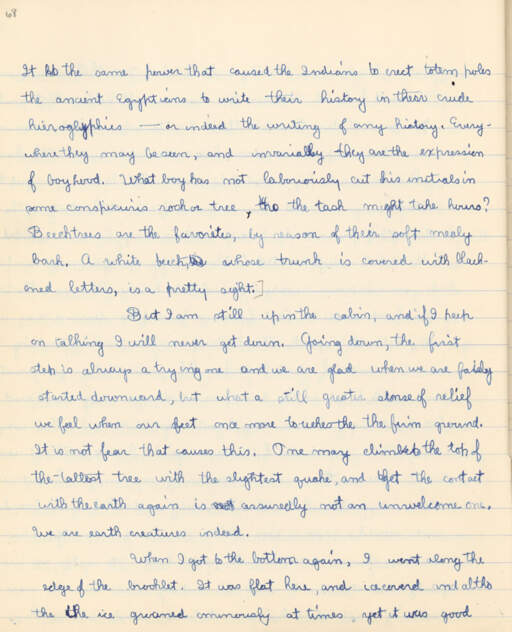 68
It is the same power that caused the Indians to erect totem poles
the ancient Egyptians to write their history in their crude
hieroglyphics — or indeed the writing of any history. Every-
where they may be seen, and invariably they are the expression
of boyhood. What boy has not laboriously cut his initials in
some conspicuis rock or tree, tho the task might take hours?
Beechtrees are the favorites, by reason of their soft mealy
bark. A white beech, whose trunk is covered with black-
ened letters, is a pretty sight.]
But I am still up in the cabin, and if I keep
on talking I will never get down. Going down, the first
step is always a trying one and we are glad when we are fairly
started downward, but what a still greater sense of relief
we feel when our feet once more touches the the firm ground.
It is not fear that causes this. One may climb to the top of
the tallest tree with the slightest quake, and yet the contact
with the earth again is assuredly not an unwelcome one.
We are earth creatures indeed.
When I got to the bottom again, I went along the
edge of the brooklet. It was flat here, and icecoverd and altho
the the ice groaned ominously at times, yet it was good